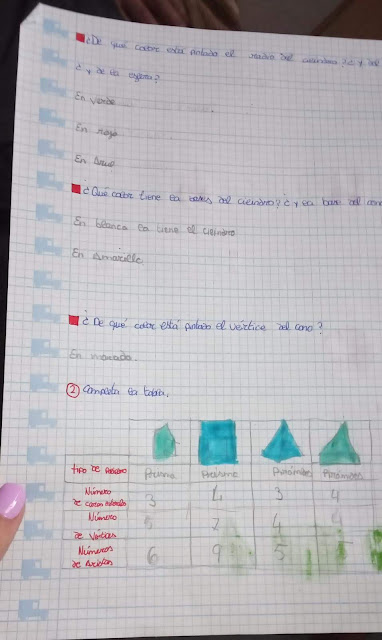 ¿De qué color está pintado el radio del cilindro? ¿y del
¿y de la esfera?
En verde
En rojo
En azul
¿Qué color tiene la bases del cilindro? ¿y la base del con
En blanca la tiene el cilindro
En amarillo.
¿De qué color está pintado el vértice del cono?
En morado.
② Completa la tabla.
TIPO DE Prisma Prisma Pirámides Pirámides
Número 3 4 3 4
de caras laterales
Número 5 4
de Vértices
Números 6 9 5
de Aristas